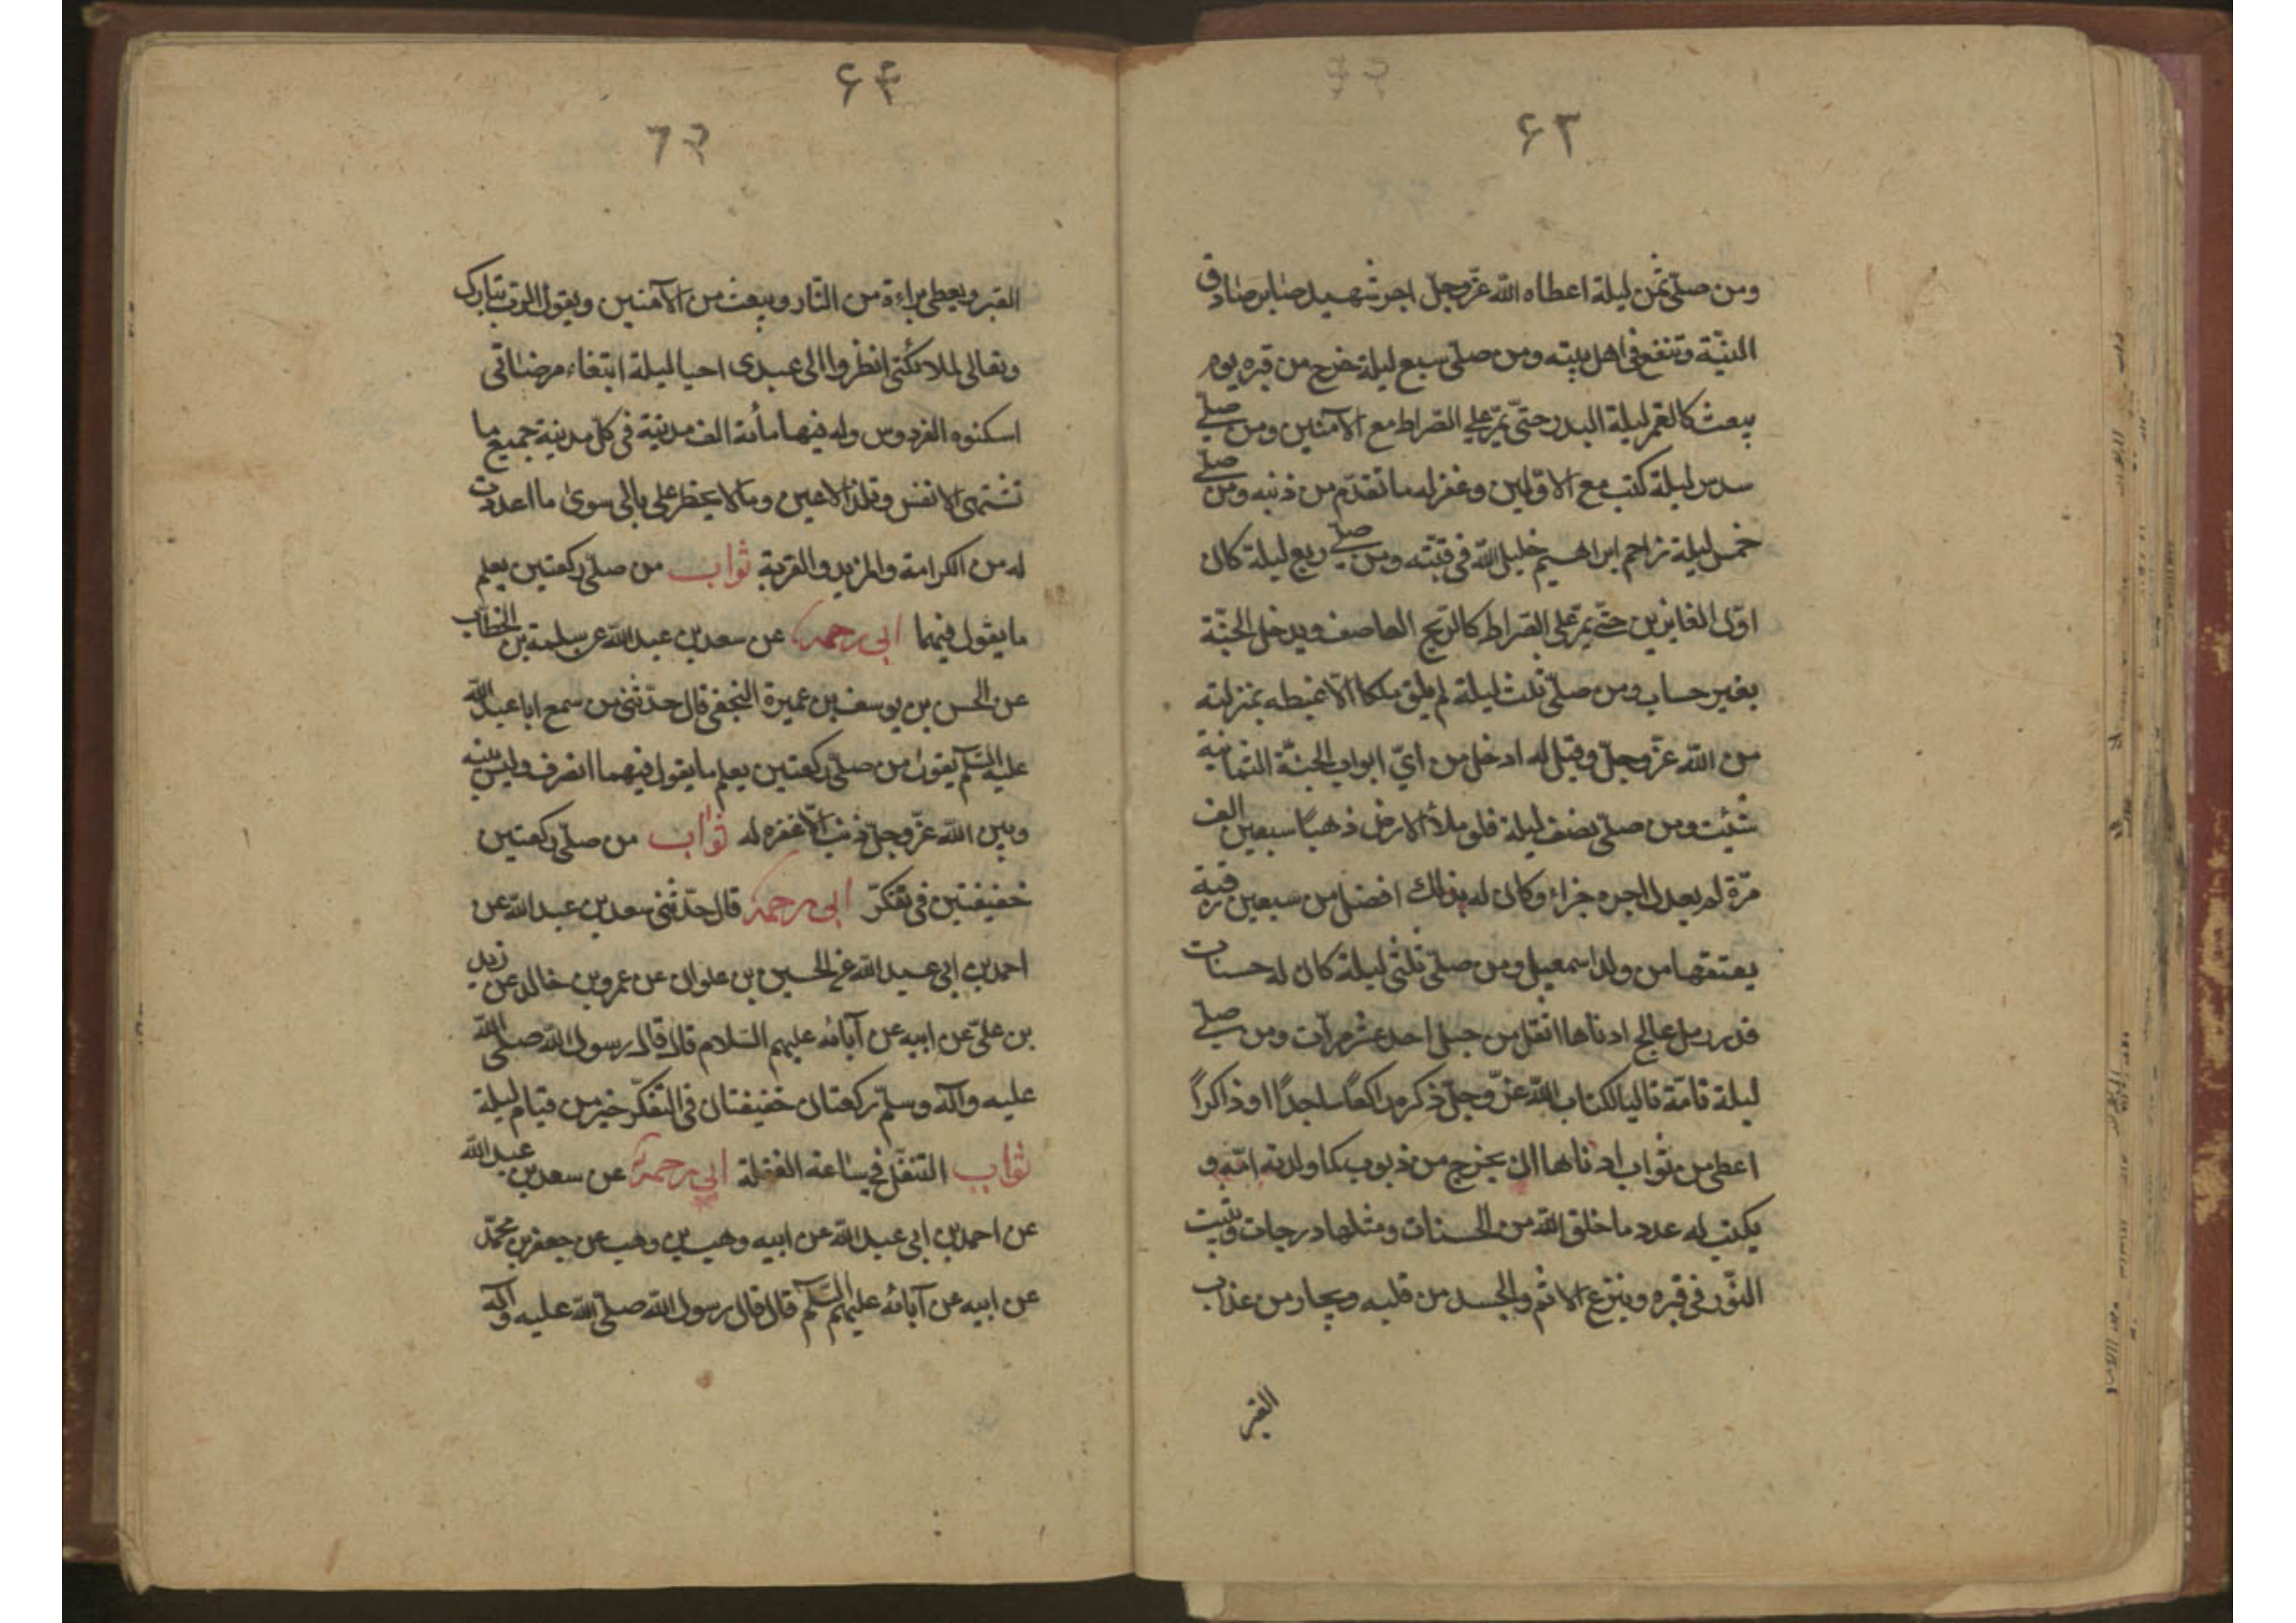 ۶۳
ومن صلّى ثمن ليلة اعطاه الله عزّوجلّ اجر شهيد صابر صادق
النيّة وتشفع فى اهل بيته ومن صلّى سبع ليلة خرج من قبره يوم
يبعث كالقمر ليلة البدر حتّى يمرّ على الصّراط مع الآمنين ومن صلّى
سدس ليلة كتب مع الاوّابين وغفر له ما تقدّم من ذنبه ومن صلّى
خمس ليلة زاحم ابراهيم خليل الله فى قبّته ومن صلّى ربع ليلة كان
اوّل الفائزين حتّى يمرّ على الصّراط كالرّيح العاصف ويدخل الجنّة
بغير حساب ومن صلّى ثلث ليلة لم يلق ملكا الّا غبطه بمنزلته
من الله عزّوجلّ وقيل له ادخل من اىّ ابواب الجنّة الثّمانية
شئت ومن صلّى نصف ليلة فلو ملأ الارض ذهبًا سبعين الف
مرّة لم يعدل اجره جزاء وكان له بذلك افضل من سبعين رقبة
يعتقها من ولد اسمعيل ومن صلّى ثلثى ليلة كان له حسنات
قدر رمل عالج ادناها اثقل من جبل احد عشر مرّات ومن صلّى
ليلة تامّة تاليا لكتاب الله عزّوجلّ ذكره راكعًا ساجدًا او ذاكرًا
اعطى من ثواب ادناها ان يخرج من ذنوب كما ولدته امّه و
يكتب له عدد ما خلق الله من الحسنات ومثلها درجات ويثبت
النّور فى قبره وينزع الاثم والحسد من قلبه ويجار من عذاب
القبر
۶۴
٦٤
القبر ويعطى براءة من النّار ويبعث من الآمنين ويقول الربّ تبارك
وتعالى لملائكتى انظروا الى عبدى احيا ليلة ابتغاء مرضاتى
اسكنوه الفردوس وله فيها مائة الف مدينة فى كلّ مدينة جميع ما
تشتهى الانفس وتلذ الاعين وما لا يخطر على بالى سوى ما اعددت
له من الكرامة والمزيد والقربة ثواب من صلّى ركعتين يعلم
ما يقول فيهما ابى رحمه عن سعد بن عبد الله عن سلمة بن الخطّاب
عن الحسن بن يوسف بن عميرة النجفى قال حدّثنى من سمع ابا عبد الله
عليه السّلم يقول من صلّى ركعتين يعلم ما يقول فيهما انصرف وليس بينه
وبين الله عزّوجلّ ذنب الّا غفره له ثواب من صلّى ركعتين
خفيفتين فى تفكّر ابى رحمه قال حدّثنى سعد بن عبد الله عن
احمد بن ابى عبد الله عن الحسين بن علوان عن عمرو بن خالد عن زيد
بن علىّ عن ابيه عن آبائه عليهم السّلام قال قال رسول الله صلّى الله
عليه وآله وسلّم ركعتان خفيفتان فى التفكّر خير من قيام ليلة
ثواب التنفّل فى ساعة الغفلة ابى رحمه عن سعد بن عبد الله
عن احمد بن ابى عبد الله عن ابيه وهب بن وهب عن جعفر بن محمّد
عن ابيه عن آبائه عليهم السّلم قال قال رسول الله صلّى الله عليه وآله